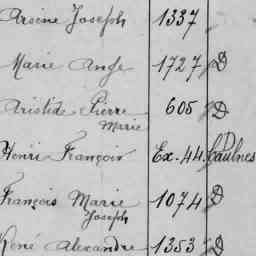 Arsène Joseph 1337
Marie Ange 1727 D
Aristide Pierre 605 D
Marie
Henri François Ex. 44 Caulnes
François Marie 1074 D
Joseph
René Alexandre 1353 D